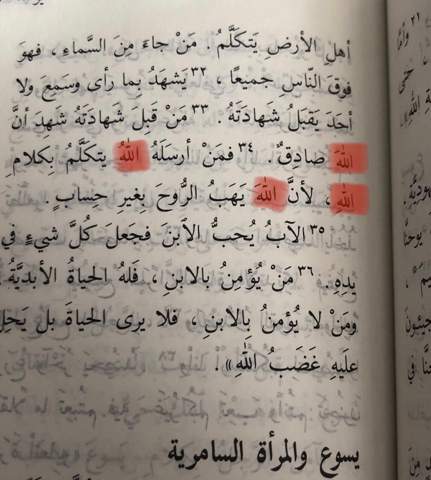 أهلِ الأرضِ يَتكَلَّمُ. مَنْ جاءَ مِنَ السَّماءِ، فهوَ
فوقَ النّاسِ جميعًا، ٣٢ يَشهَدُ بِما رأى وسَمِعَ ولا
أحَدَ يَقبَلُ شَهادَتَهُ. ٣٣ مَنْ قَبِلَ شَهادَتَهُ شَهِدَ أنَّ
اللهَ صادِقٌ. ٣٤ فمَنْ أرسَلَهُ اللهُ يتكَلَّمُ بِكلامِ
اللهِ، لأنَّ اللهَ يَهَبُ الرُّوحَ بِغيرِ حِسابٍ.
٣٥ الآبُ يُحبُّ الابنَ فجعَلَ كُلَّ شيءٍ في
يدِهِ. ٣٦ مَنْ يُؤمِنُ بالابنِ، فلَهُ الحياةُ الأبديَّةُ.
ومَنْ لا يُؤمنُ بِالابنِ، فلا يرى الحياةَ بل يَحِلُّ
علَيهِ غَضَبُ اللهِ».
يسوع والمرأة السامرية